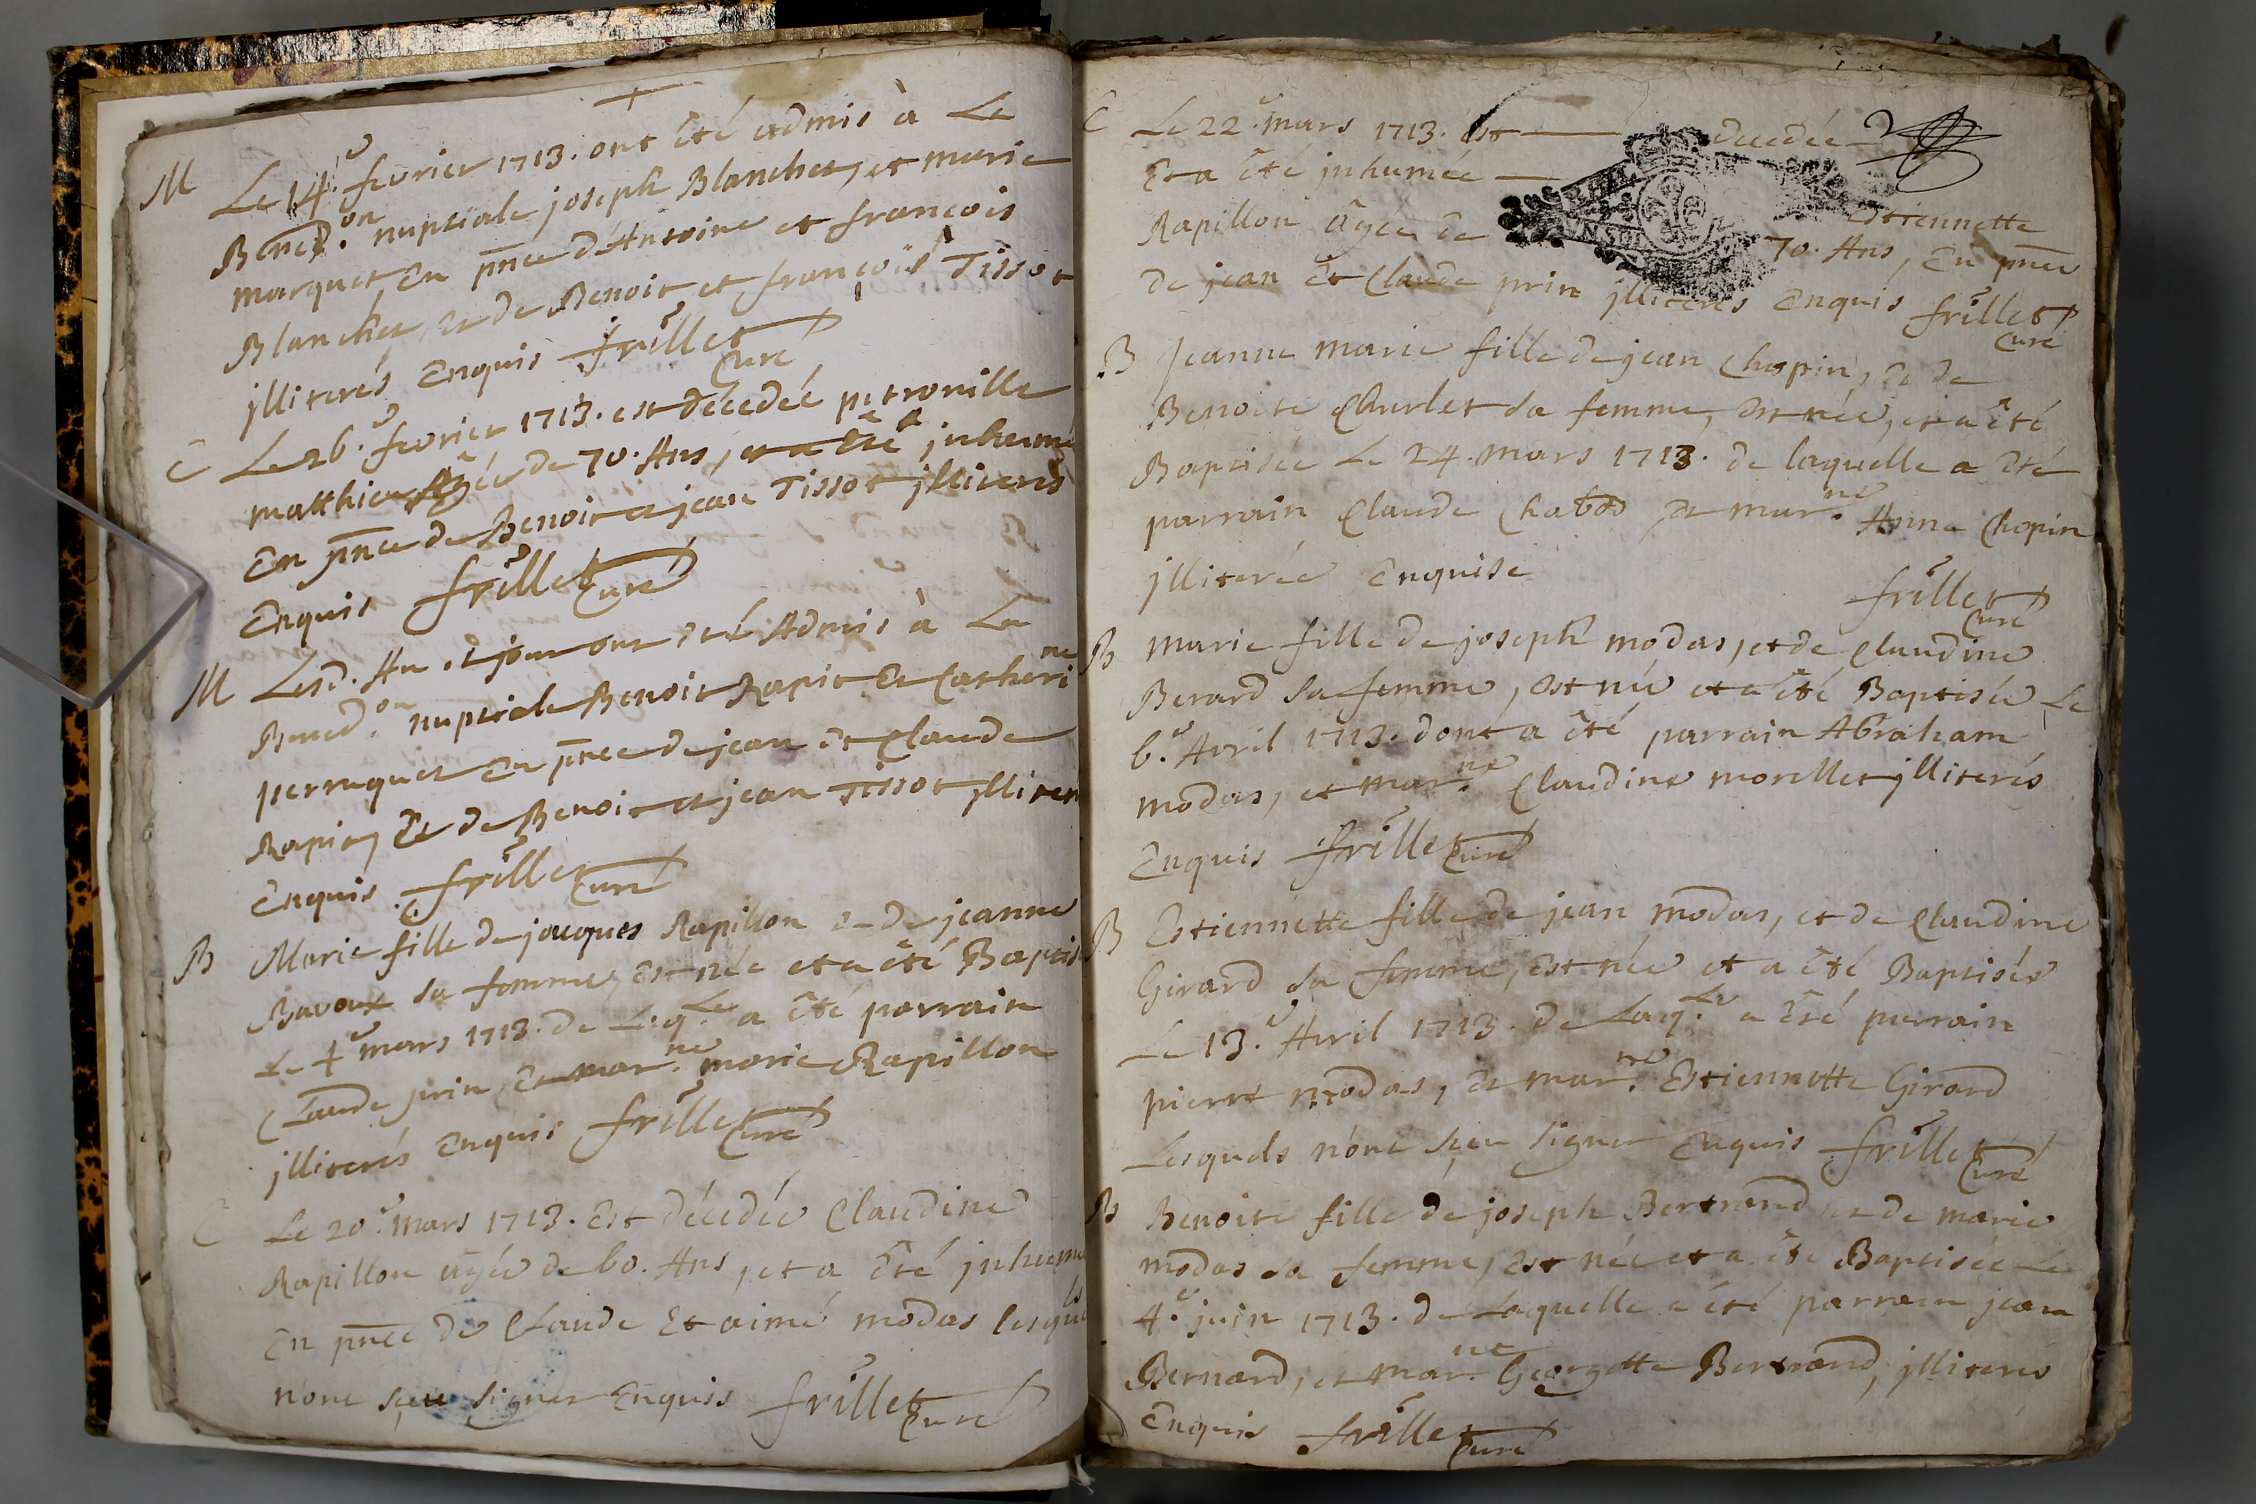 M Le 14.e fevrier 1713. ont été admis à La
Bened.on nuptiale joseph Blanchet, et marie
marquet, En pñce d'Antoine et françois
Blanchet, et de Benoit et françois Tissot
jlliterés Enquis frillet Curé
C Le 26.e fevrier 1713. est décedée petronille
matthieu Agée de 70. Ans, et a été jnhumé
En pñce de Benoit et jean Tissot jlliterés
Enquis frillet Curé
M Lesd. An et jour ont été Admis à La
Bened.on nuptiale Benoit Rapit Et Catherine
perruquet En pñce de jean Et Claude
Rapit, Et de Benoit et jean Tissot jlliter
Enquis frillet Curé
B Marie fille de jacques Rapillon et de jeanne
Bavoux sa femme, Est née et a été Baptis
Le 4.e mars 1713. de Laq.le a été parrain
Claude prin, Et mar.ne marie Rapillon
jlliterés Enquis frillet Curé
C Le 20.e Mars 1713. Est décedée Claudine
Rapillon agée de 60. Ans, et a été jnhumé
En pñce de Claude Et aimé modas lesquels
n'ont sçeu signer Enquis frillet Curé
C Le 22.e mars 1713. est decedée
Et a été jnhumée Estiennette
Rapillon âgée de 70. Ans, En pñce
de jean Et Claude prin jlliterés Enquis frillet Curé
B Jeanne marie fille de jean Chopin, et de
Benoite Charlet sa femme, Est née, et a été
Baptisée Le 24. mars 1713. de laquelle a été
parrain Claude Chabod, et mar.ne Anne Chopin
jlliterée Enquise frillet Curé
B Marie fille de joseph modas, et de Claudine
Berard sa femme, Est née et a été Baptisée Le
6.e Avril 1713. dont a été parrain Abraham
modas, et mar.ne Claudine morellet jlliterés
Enquis frillet Curé
B Estiennette fille de jean modas, et de Claudine
Girard sa femme, Est née et a été Baptisée
Le 13.e Avril 1713. de Laq.le a été parrain
pierre modas, et mar.ne Estiennette Girard
Lesquels n'ont sçeu signer Enquis frillet Curé
B Benoite fille de joseph Bertrand et de marie
modas sa femme, Est née et a été Baptisée Le
4.e juin 1713. de Laquelle a été parrain jean
Bernard, et mar.ne Georgette Bertrand, jlliterés
Enquis frillet Curé